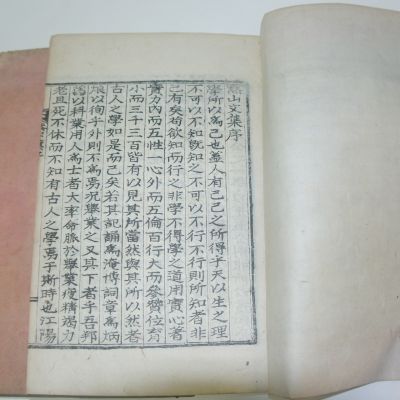 山文集序
學所以爲己也盖人有己己之所得乎天以生之理
不可以不知旣知之不可以不行不行則所知者非
己有矣苟欲知而行之非學不得學之道用實心著
實力內而五性一心外而五倫百行大而參贊位育
小而三千三百皆有以見其所當然與其所以然者
古人之學如是而已矣若其記誦爲淹博詞章爲炳
烺以徇乎外則不爲焉況擧業之又其下者乎吾邦
以科業用人爲士者大率命脈於擧業疲精竭力
老且死不休而不知有古人之學焉于斯時也江陽